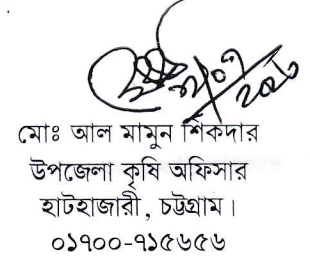 মোঃ আল মামুন শিকদার
উপজেলা কৃষি অফিসার
হাটহাজারী, চট্টগ্রাম।
০১৭০০-৭১৫৬৫৬